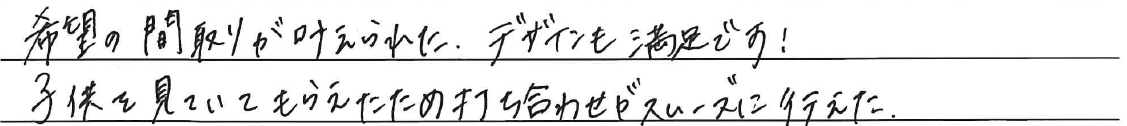 希望の間取りが叶えられた. デザインも満足です!
子供を見ていてもらえたため打ち合わせがスムーズに行えた.